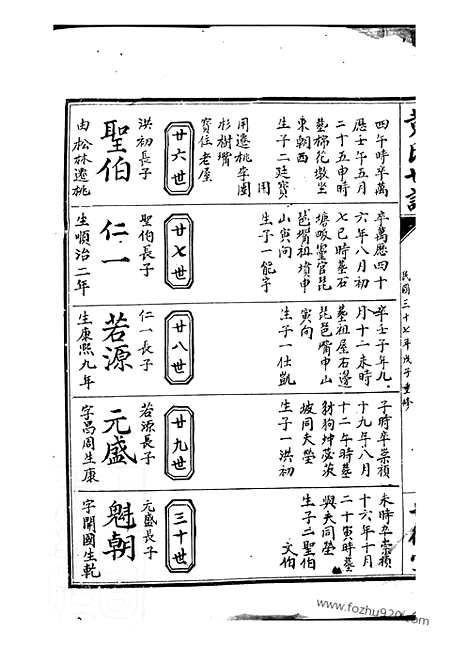 民國三十七年戊子重修
四午時卒萬
歷壬午五月
二十五申時
葬棉花墩坐
東朝西
生子二廷寶
用
用遷桃李園
杉樹嘴
寶住老屋
廿六世
洪初長子
聖伯
由松林遷桃
卒萬歷四十
六年八月初
七巳時葬石
塘靈官琵
琶嘴祖墳申
山寅向
生子一能字
廿七世
聖伯長子
仁一
生順治二年
卒壬子年九
月十二未時
葬祖屋石邊
琵琶嘴申山
寅向
生子一仕凱
廿八世
仁一長子
若源
生康熙九年
子時卒崇禎
十九年八月
十二午時葬
豺狗坤茂茨
坡同夫塋
生子一洪初
廿九世
若源長子
元盛
字昌周生康
未時卒崇禎
十六年十月
二十寅時葬
與夫同塋
生子二聖伯
文伯
三十世
元盛長子
魁朝
字開國生乾
www.fozhu920.com